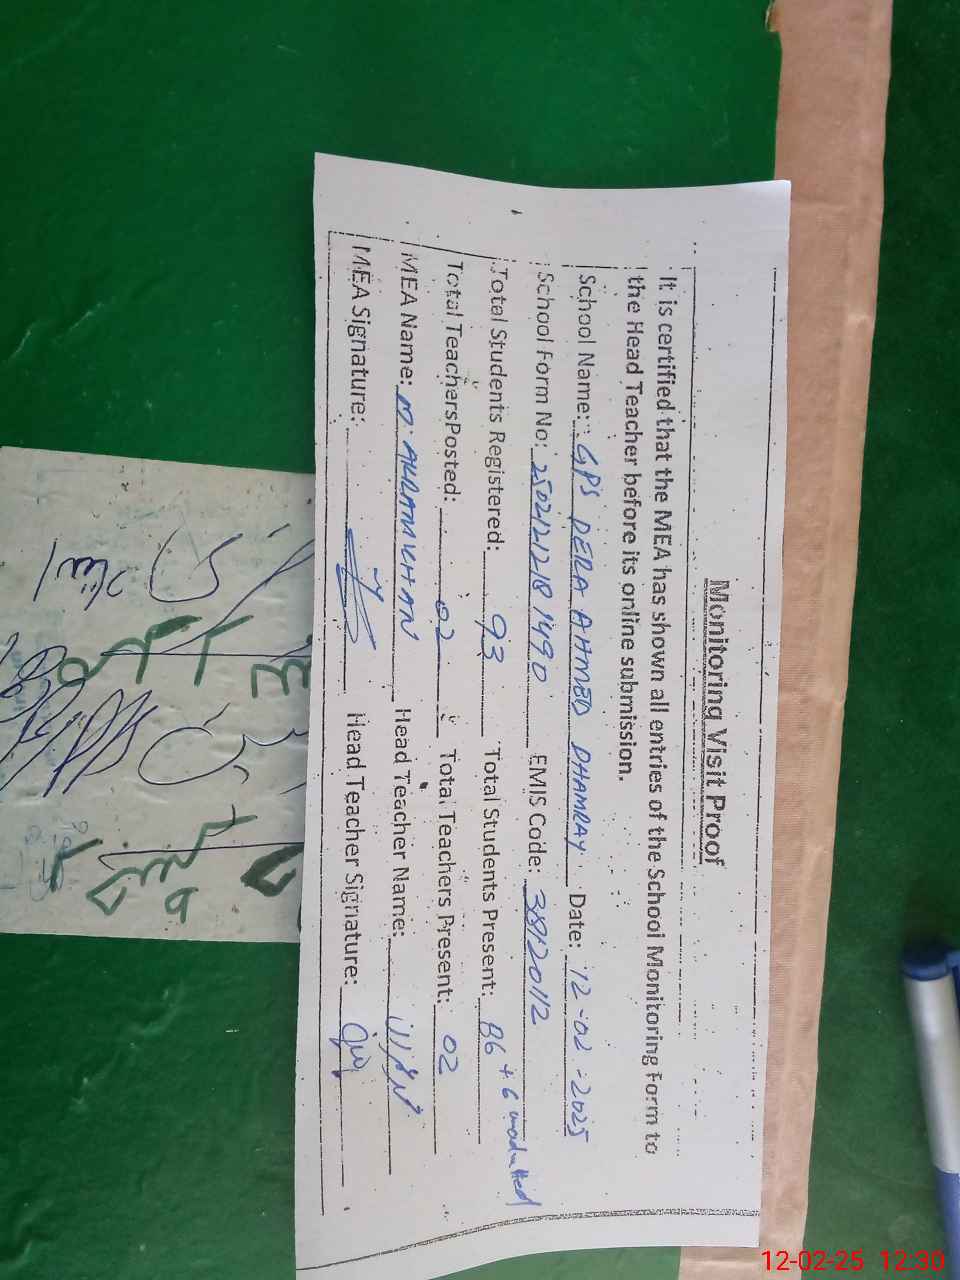 Monitoring Visit Proof
It is certified that the MEA has shown all entries of the School Monitoring Form to
the Head Teacher before its online submission.
School Name: GPS DERA AHMED DHAMRAY Date: 12-02-2025
School Form No: 25021212181490 EMIS Code: 38120112
Total Students Registered: 93 Total Students Present: 86 + 6
Total Teachers Posted: 02 Total Teachers Present: 02
MEA Name: M. AKRAM KHAN Head Teacher Name:
MEA Signature: Head Teacher Signature:
12-02-25 12:30